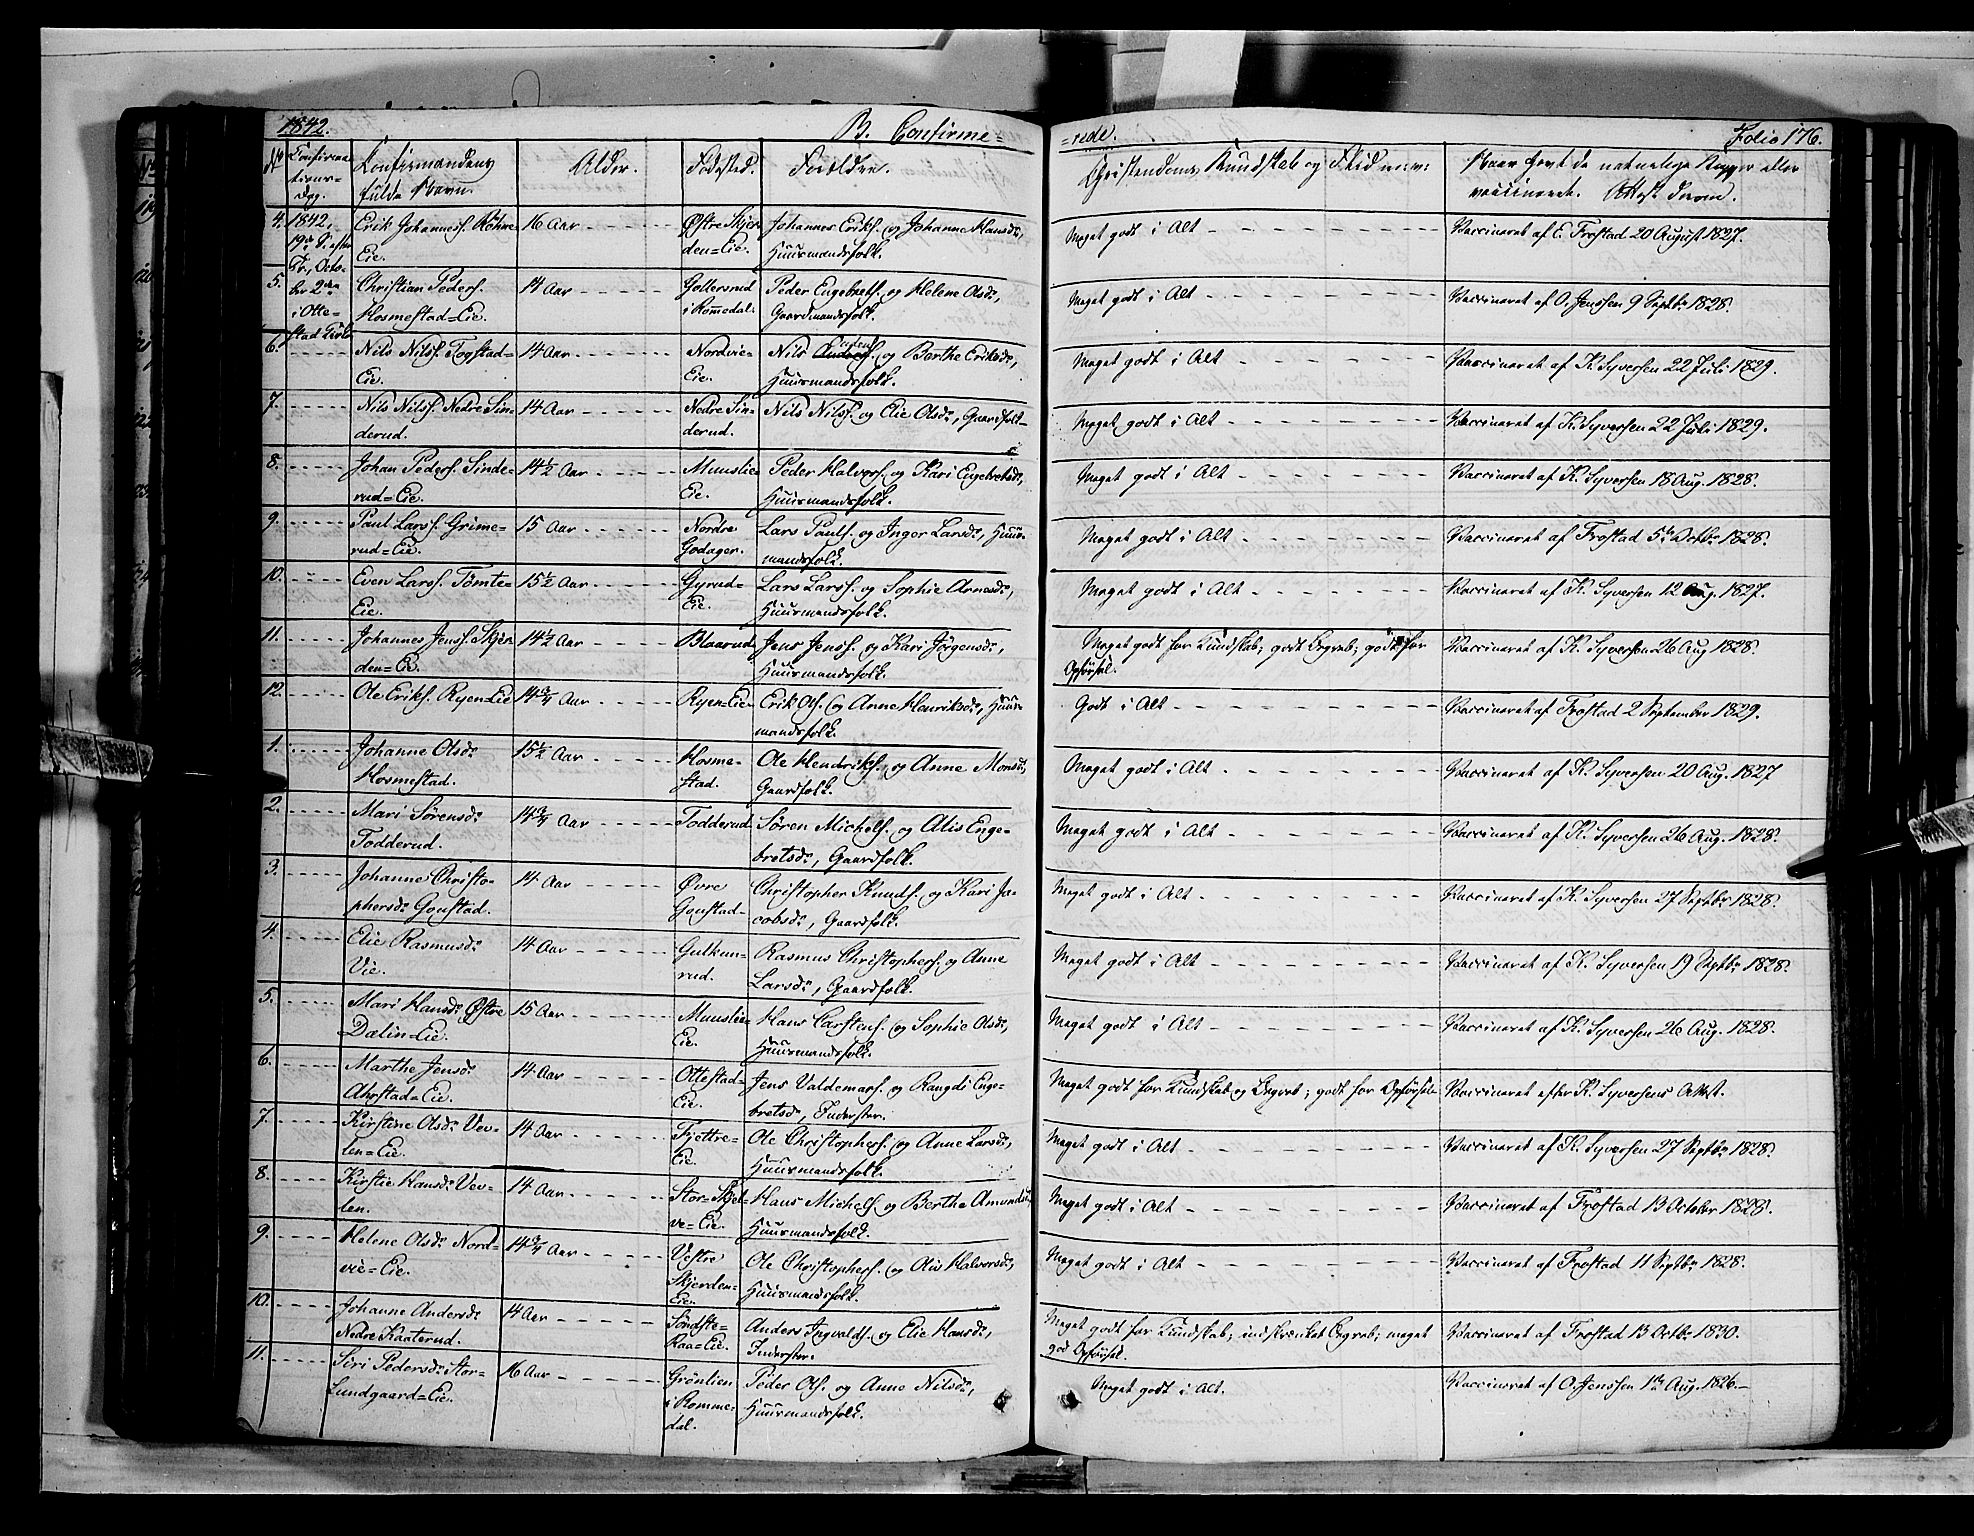 1842. B. Confirme= =rede. Folio 176.
No Confirma- tions- Dag. Konfirmandens fulde Navn. Alder. Fødested. Forældre. Christendoms Kundskab og Flid m: v: Naar havt de naturlige Kopper eller vaccineret. Attest derom.
4. 1842, 19de S. efter Tr., Octo- ber 2den i Otte- stad Kirke Erik Johanness. Röhne Eie. 16 Aar Østre Skjer- den=Eie. Johannes Eriks. og Johanne Hansdr, Huusmandsfolk. Meget godt i Alt Vaccineret af E. Frostad 20 August 1827.
5. Christian Peders. Hosmestad=Eie. 14 Aar Gollersrud i Romedal. Peder Engebrets. og Helene Olsdr, Gaardmandsfolk. Meget godt i Alt Vaccineret af O. Jenssen 9 Septbr 1828.
6. Nils Nilss. Togstad= Eie. 14 Aar Nordvie= Eie. Nils og Berthe Eriksdr, Huusmandsfolk. Meget godt i Alt Vaccineret af K. Syversen 22 Juli 1829.
7. Nils Nilss. Nedre Sin- derud. 14 Aar Nedre Sin- derud. Nils Nilss. og Elie Olsdr, Gaardfolk Meget godt i Alt Vaccineret af K. Syversen 22 Juli 1829.
8. Johan Peders. Sinde- rud=Eie. 14½ Aar Muuslie Eie. Peder Halvors. og Kari Engebretsdr, Huusmandsfolk. Meget godt i Alt Vaccineret af K. Syversen 18 Aug. 1828.
9. Paul Larss. Grime- rud=Eie. 15 Aar Nordre Godager. Lars Pauls. og Inger Larsdr, Huus- mandsfolk. Meget godt i Alt Vaccineret af Frostad 5te Octbr 1828.
10. Even Larss. Tømte- Eie. 15½ Aar Gyrud= Eie. Lars Larss. og Sophie Arnesdr, Huusmandsfolk. Meget godt i Alt Vaccineret af K. Syversen 12 Aug. 1827.
11. Johannes Jenss. Skjer- den=Eie. 14½ Aar Blaarud Jens Jenss. og Kari Jörgensdr, Huusmandsfolk. Meget godt for Kundskab; godt Begreb; godt for Opførsel. Vaccineret af K. Syversen 26 Aug 1828.
12. Ole Eriks. Ryen=Eie 14¾ Aar Ryen=Eie Erik Ols. og Anne Henriksdr, Huus- mandsfolk. Godt i Alt Vaccineret af Frostad 2 September 1829.
1. Johanne Olsdr Hosmestad. 15½ Aar Hosme- stad. Ole Hendriks. og Anne Monsdr, Gaardfolk. Meget godt i Alt Vaccineret af K. Syversen 20 Aug. 1827
2. Mari Sörensdr Todderud. 14¾ Aar Todderud Sören Michels. og Alis Enge- bretsdr, Gaardfolk. Meget godt i Alt Vaccineret af K. Syversen 26 Aug. 1828.
3. Johanne Christo- phersdr Gonstad. 14 Aar Øvre Gonstad Christopher Knuds. og Kari Ja- cobsdr, Gaardfolk. Meget godt i Alt Vaccineret af K. Syversen 27 Septbr 1828.
4. Elie Rasmusdr Vie. 14 Aar Gulkun- rud. Rasmus Christophers. og Anne Larsdr, Gaardfolk. Meget godt i Alt Vaccineret af K. Syversen 19 Septbr 1828.
5. Mari Hansdr Østre Dælin=Eie. 15 Aar Muuslie- Eie. Hans Carstens. og Sophie Olsdr, Huusmandsfolk. Meget godt i Alt Vaccineret af K. Syversen 26 Aug. 1828.
6. Marthe Jensdr Ahrstad=Eie. 14 Aar Ottestad= Eie. Jens Valdemars. og Rangdi Enge- bretsdr, Inderster. Meget godt for Kundskab og Begreb; godt for Opførsel Vaccineret efter K. Syversens Attest.
7. Kirstine Olsdr Vev- len=Eie. 14 Aar Fjettre- Eie. Ole Christophers. og Anne Larsdr, Huusmandsfolk. Meget godt i Alt Vaccineret af K. Syversen 27 Septbr 1828.
8. Kirstie Hansdr Vev- len. 14 Aar Stor=Skjel- ve=Eie. Hans Michels. og Berthe Amundsdr, Huusmandsfolk. Meget godt i Alt Vaccineret af Frostad 13 October 1828.
9. Helene Olsdr Nord- vie=Eie. 14¾ Aar Vestre Skjerden- Eie. Ole Christophers. og Alis Halvorsdr, Huusmandsfolk. Meget godt i Alt Vaccineret af Frostad 11 Septbr 1828.
10. Johanne Andersdr Nedre Kaaterud. 14 Aar Söndste- Raa=Eie. Anders Ingvalds. og Elie Hansdr, Inderster. Meget godt for Kundskab; indskrænket Begreb; meget god Opførsel. Vaccineret af Frostad 13 Octbr 1830.
11. Siri Pedersdr Stor- Lundgaard=Eie. 16 Aar Grönlien i Romme- dal. Peder Ols. og Anne Nilsdr, Huusmandsfolk. Meget godt i Alt. Vaccineret af O. Jenssen 1ste Aug. 1826.